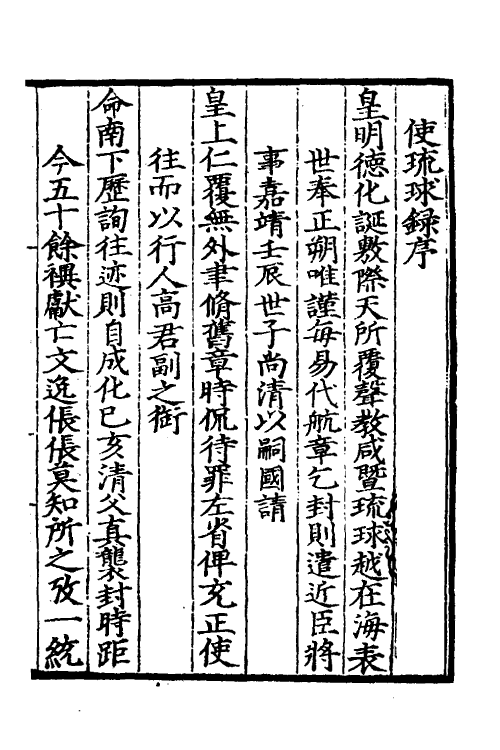 使琉球録序
皇明德化誕敷際天所覆聲教咸曁琉球越在海表
世奉正朔唯謹每易代航章乞封則遣近臣將
事嘉靖壬辰世子尚清以嗣國請
皇上仁覆無外聿脩舊章時侃待罪左省俾充正使
往而以行人高君副之銜
命南下歷詢往迹則自成化己亥清父真襲封時距
今五十餘禩獻亡文逸倀倀莫知所之攷一統